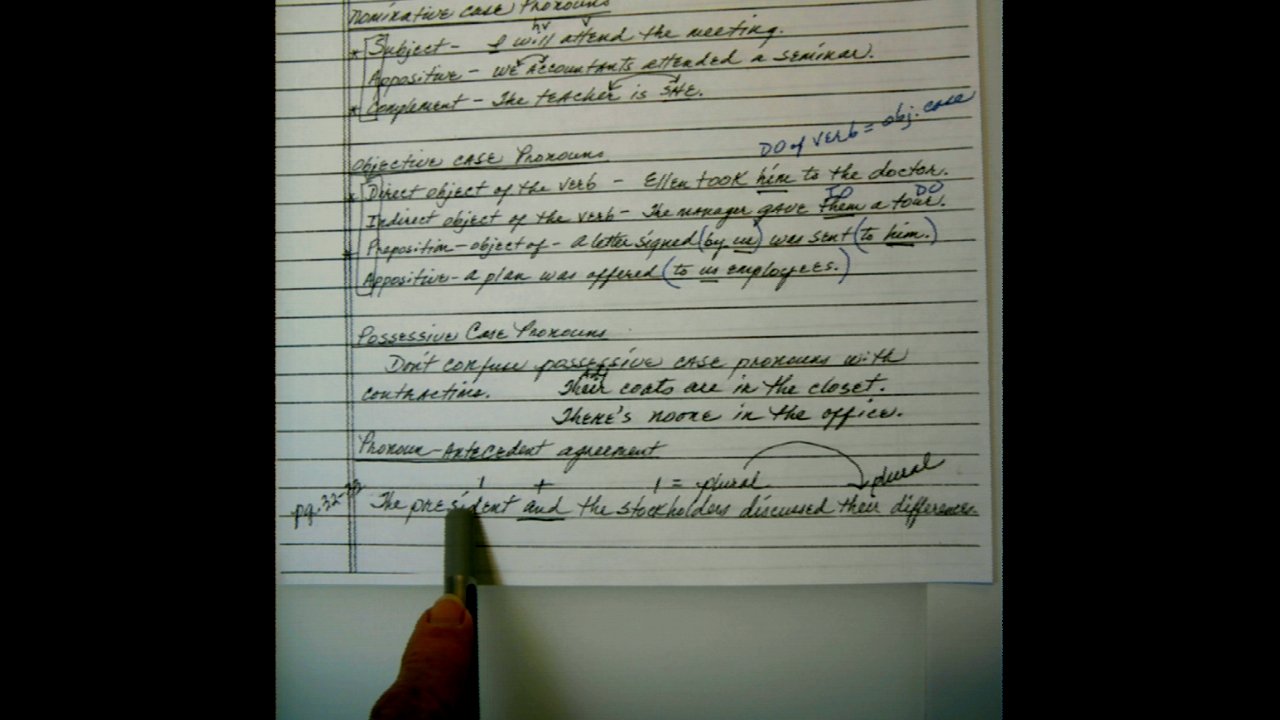 Nominative Case Pronouns
hv v
* Subject - I will attend the meeting.
Appositive - we accountants attended a seminar.
* Complement - The teacher is SHE.
DO of verb = obj. case
Objective case Pronouns
* Direct object of the verb - Ellen took him to the doctor.
IO DO
Indirect object of the verb - The manager gave them a tour.
* Preposition - object of - a letter signed (by us) was sent (to him.)
Appositive - a plan was offered (to us employees.)
Possessive Case Pronouns
Don't confuse possessive case pronouns with
contractions. Their coats are in the closet.
There's noone in the office.
Pronoun - Antecedent agreement
1 + 1 = plural plural
pg. 32-33 The president and the stockholders discussed their differences.